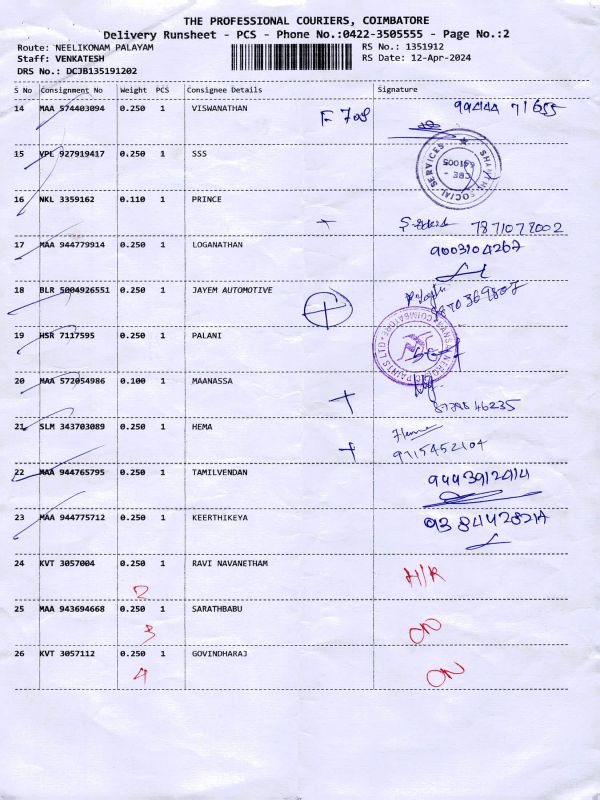 THE PROFESSIONAL COURIERS, COIMBATORE
Delivery Runsheet - PCS - Phone No.:0422-3505555 - Page No.:2
Route: NEELIKONAM PALAYAM RS No.: 1351912
Staff: VENKATESH RS Date: 12-Apr-2024
DRS No.: DCJB135191202
S No Consignment No Weight PCS Consignee Details Signature
14 MAA 574403094 0.250 1 VISWANATHAN F 708 99444 71655
15 VPL 927919417 0.250 1 SSS
SOCIAL SERVICES
CBE -
641005
16 NKL 3359162 0.110 1 PRINCE
7871078002
17 MAA 944779914 0.250 1 LOGANATHAN 9003104267
18 BLR 5004926551 0.250 1 JAYEM AUTOMOTIVE
19 HSR 7117595 0.250 1 PALANI
PAINTS LTD
COIMBATORE
20 MAA 572054986 0.100 1 MAANASSA
21 SLM 343703089 0.250 1 HEMA Hema
9715452104
22 MAA 944765795 0.250 1 TAMILVENDAN 9443912414
23 MAA 944775712 0.250 1 KEERTHIKEYA
24 KVT 3057004 0.250 1 RAVI NAVANETHAM H/R
2
25 MAA 943694668 0.250 1 SARATHBABU ON
3
26 KVT 3057112 0.250 1 GOVINDHARAJ ON
4